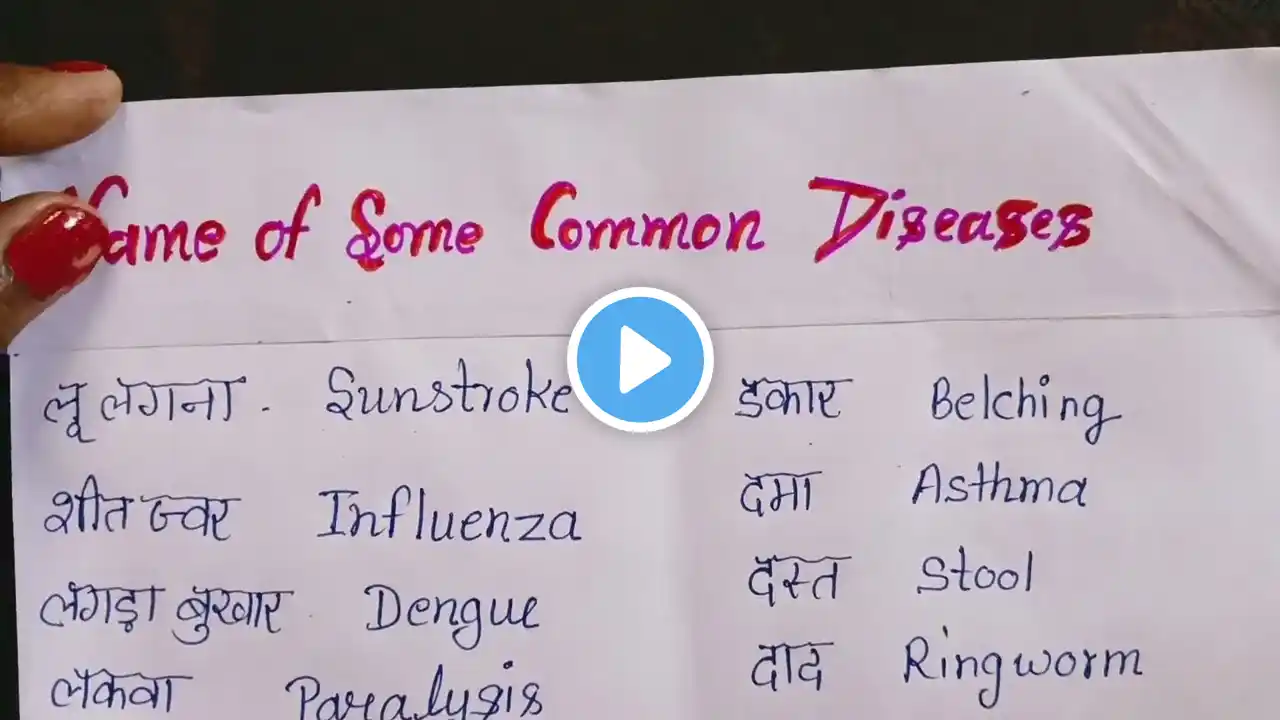 Name of Some Common Diseases
लू लगना . Sunstroke
शीत ज्वर Influenza
लंगड़ा बुखार Dengue
लकवा Paralysis
डकार Belching
दमा Asthma
दस्त Stool
दाद Ringworm